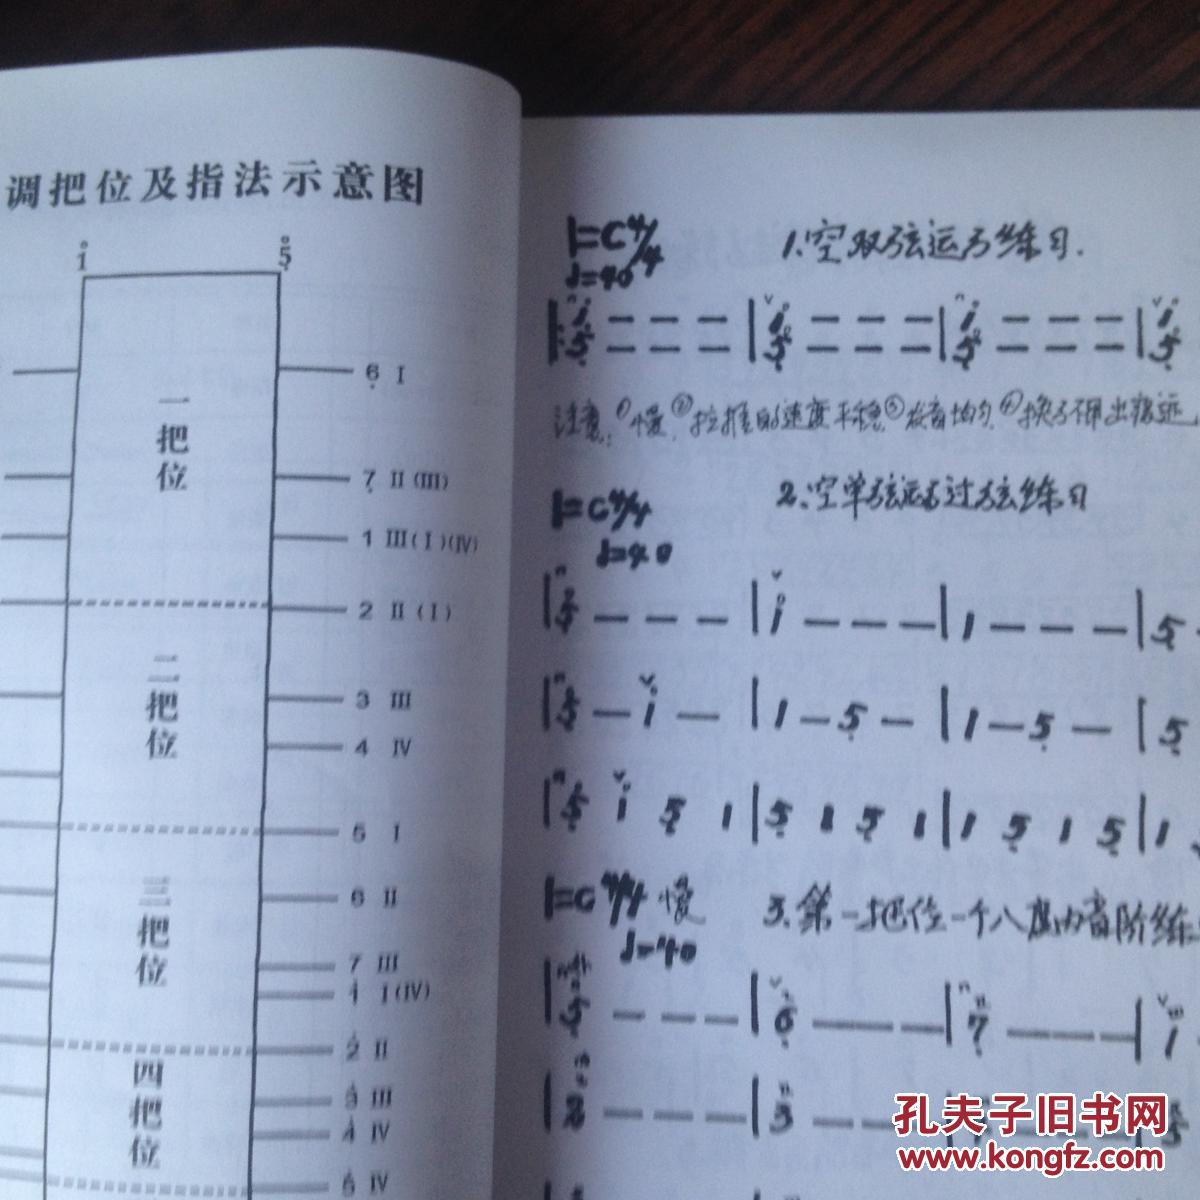 调把位及指法示意图
1 5
6 I
一把位
7 II (III)
1 III (I)(IV)
2 II (I)
二把位
3 III
4 IV
5 I
三把位
6 II
7 III
1 I(IV)
2 II
四把位
3 III
4 IV
5 IV
1=C 4/4 1.空双弦运弓练习.
♩=40
| i 5 — — — | i 5 — — — | i 5 — — — | i 5
注意: ①慢, ②拉推的速度平稳 ③发音均匀, ④换弓
1=C 4/4 2.空单弦运弓过弦练习
♩=40
| 5 — — — | i — — — | 1 — — — | 5
| 5 — i — | 1 — 5 — | 1 — 5 — | 5
| 5 i 5 1 | 5 1 5 1 | 1 5 1 5 | 1
1=C 4/4 慢 3.第一把位一个八度内音阶练
♩=40
| 5 — — — | 6 — — — | 7 — — — | i
| 2 — — — | 3 — —
孔夫子旧书网
www.kongfz.com